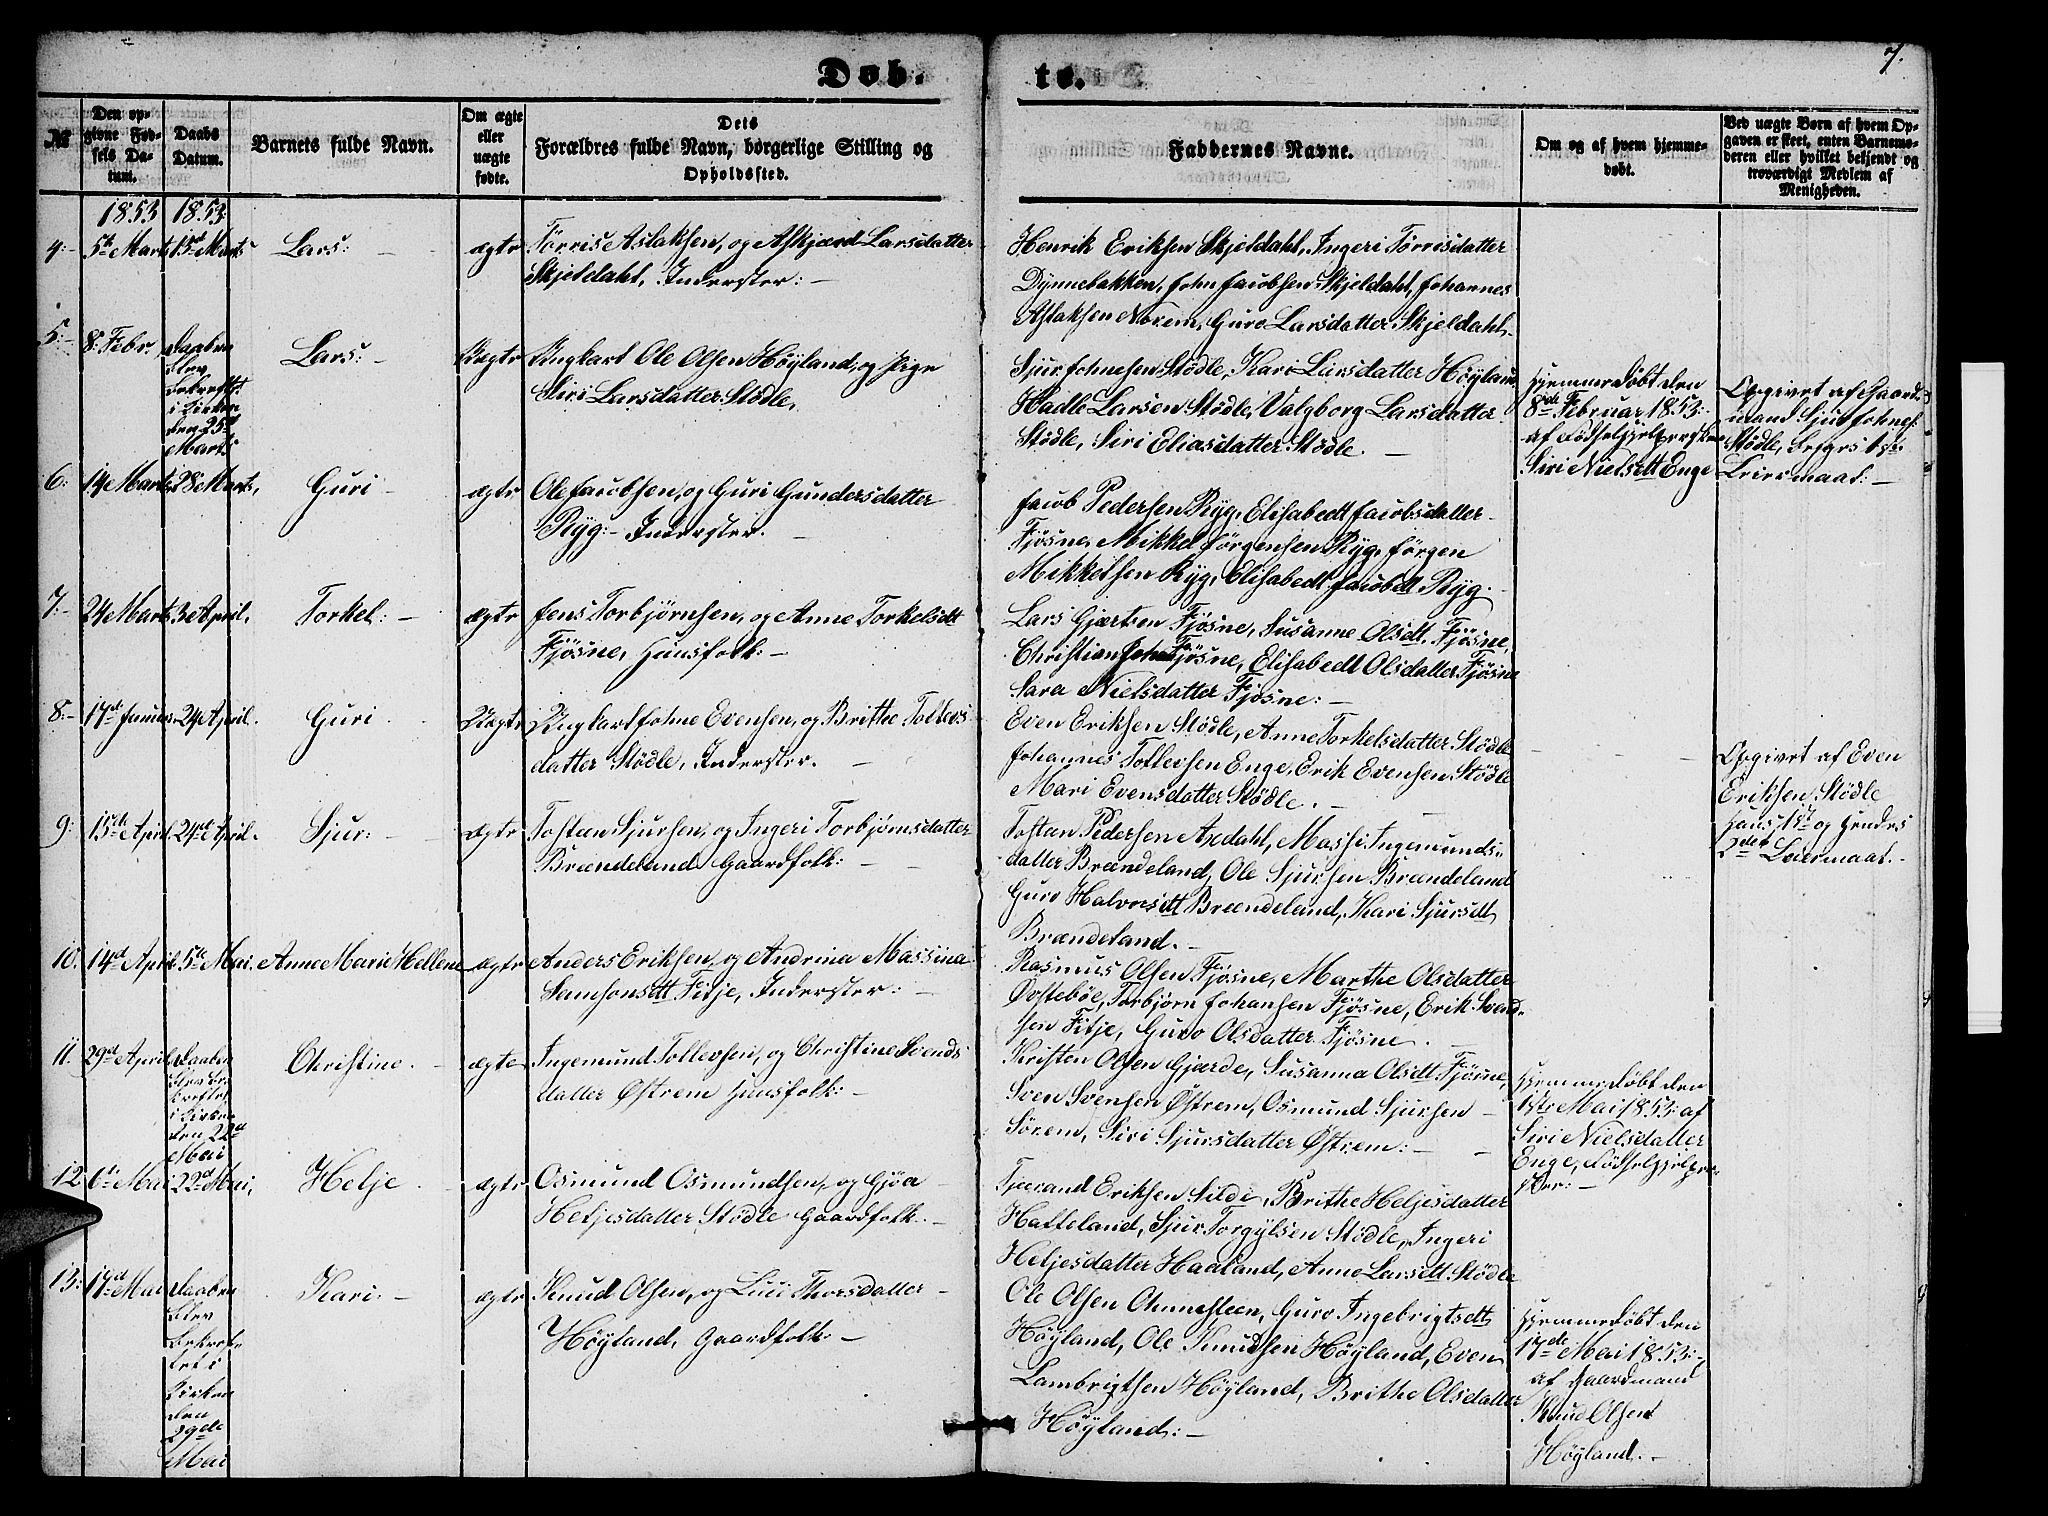 Døb. te.
7.
№
Den op-
givne Fød-
sels Da-
tum.
Daabs
Datum.
Barnets fulde Navn.
Om ægte
eller
uægte
fødte.
Dets
Forældres fulde Navn, borgerlige Stilling og
Opholdssted.
Faddernes Navne.
Om og af hvem hjemme-
døbt.
Ved uægte Børn af hvem Op-
gaven er skeet, enten Barnemo-
deren eller hvilket bekjendt og
troværdigt Medlem af
Menigheden.
1853 1853
4:- 5te Marts 13d Marts Lars: - ægte
Tørris Aslaksen, og Askjærd Larsdatter
Skjeldahl, Inderster: -
Henrik Eriksen Skjeldahl, Ingeri Tørrisdatter
Dÿnnebakken, John Jacobsen Skjeldahl, Johannes
Aslaksen Norem, Guro Larsdatter Skjeldahl,
5:- 8: Febr.
Daaben
blev
bekræftet
i Kirken
den 25d
Marts
Lars: - Uægte
Ungkarl Ole Olsen Höyland, og Pige
Siri Larsdatter Stödle,
Sjur Johnesen Stödle, Kari Larsdatter Höyland
Hadle Larsen Stödle, Valgborg Larsdatter
Stödle, Siri Eliasdatter Stödle. -
Hjemmedöbt den
8de Februar 1853:
af Födselhjelperske
Siri Nielsdtt Enge
Opgivet af Gaard-
mand Sjur Johnes:
Stödle, begges 1ste
Leiermaal: -
6: 14 Marts 28 Marts, Guri - ægte
Ole Jacobsen, og Guri Gundersdatter
Ryg: - Inderster. -
Jacob Pedersen Ryg, Elisabedt Jacobsdatter
Fjösne, Mikkel Jörgensen Ryg, Jörgen
Mikkelsen Ryg, Elisabedt Jacobsdt Ryg.
7:- 24 Marts 3 April. Torkel: - ægte
Jens Torbjörnsen, og Anne Torkelsdt
Fjösne, Huusfolk: -
Lars Gjertsen Fjösne, Susanne Olsdt. Fjösne,
Christian Johns Fjösne, Elisabedt Olsdatter Fjösne
Sara Nielsdatter Fjösne: -
8:- 17d Januar. 24 April. Guri - Uægte
Ungkarl Johne Evensen, og Brithe Tollevs-
datter Stödle, Inderster. -
Even Eriksen Stödle, Anne Torkelsdatter Stödle
Johannes Tollevsen Enge, Erik Evensen Stödle
Mari Evensdatter Stödle. -
Opgivet af Even
Eriksen Stödle
Hans 1st og hendes
2det Leiermaal. -
9: 15de April. 24de April. Sjur: - ægte
Tostan Sjursen, og Ingeri Torbjörnsdatter
Brændeland Gaardfolk: -
Tostan Pedersen Apdahl, Massi Ingemunds-
datter Brændeland, Ole Sjursen Brændeland
Guro Halvorsdtt Brændeland, Kari Sjursdt
Brændeland. -
10: 14d April 5te Mai. Anne Marie Hellene ægte
Anders Eriksen, og Andrina Massina
Samsonsdtt Fitje, Inderster: -
Rasmus Olsen Fjösne, Marthe Olsdatter
Övstebøe, Torbjörn Johansen Fjösne, Erik Svend-
sen Fitje, Guro Olsdatter Fjösne. -
11. 29d April
Daaben
blev be-
kræftet
i Kirken
den 22d
Mai
Christine. - ægte
Ingemund Tollevsen, og Christine Svends
datter Østrem Huusfolk: -
Kristen Olsen Gjærde, Susanna Olsdt. Fjösne,
Sven Svensen Østrem, Osmund Sjursen -
Sörem, Siri Sjursdatter Østrem: -
Hjemmedöbt den
1ste Mai 1853 af
Siri Nielsdatter
Enge, Födselhjelper-
sker: -
12 6te Mai 22d Mai, Helje - ægte
Osmund Osmundsen, og Gjöa
Heljesdatter Stödle Gaardfolk: -
Tjerand Eriksen Silde, Brithe Heljesdatter
Hatteland, Sjur Torgÿlsen Stödle, Ingeri
Heljesdatter Haaland, Anne Larsdtt Stödle
13: 17d Mai
Daaben
blev
bekræf-
tet i
Kirken
den
29de
Mai
Kari: - ægte
Knud Olsen, og Luci Thorsdatter -
Höyland, Gaardfolk: -
Ole Olsen Ummesteen, Guro Ingebrigtsdt
Höyland, Ole Knudsen Höyland, Even
Lambrigtsen Höyland, Brithe Olsdatter
Höyland: -
Hjemmedöbt den
17de Mai 1853:
af Gaardmand
Knud Olsen
Höyland. -